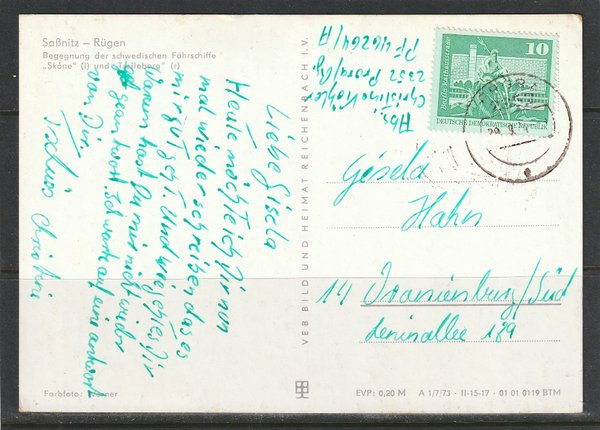 Saßnitz – Rügen
Begegnung der schwedischen Fährschiffe
„Skåne" (l) und „Trelleborg" (r)
Liebe Gisela
Heute möchte ich Dir nun
mal wieder schreiben das es
mir gut get. Und wie get es Dir
Warum hast Du mir nicht wieder
geantwort. Ich warte auf eine antwort
von Dir.
Tschüss
Farbfoto:
VEB BILD UND HEIMAT REICHENBACH i. V.
Abs.
2352 Prora/Rüg
PF 46264/A
10
DEUTSCHE DEMOKRATISCHE REPUBLIK
Gisela
Hahn
14 Oranienburg/Süd
Leninallee 189
EVP: 0,20 M A 1/7/73 · II-15-17 · 01 01 0119 BTM